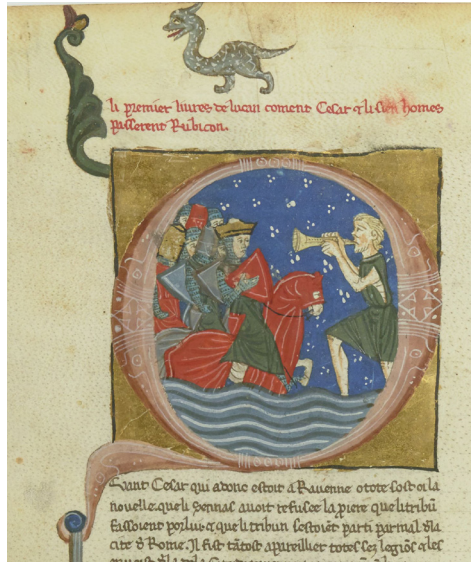 li premier liures de lucan coment Cesar ⁊ li sien homes
passerent Rubicon.
Quant Cesar qui adonc estoit a Rauenne o tote sost oi la
nouelle. que li senas auoit refusee la piere que li tribū
fassoient por lui. ⁊ que li tribun sestoiēt parti par mal d'la
cite d' Rome. Jl fist tātost apareillier totes sez legiōs ⁊ les